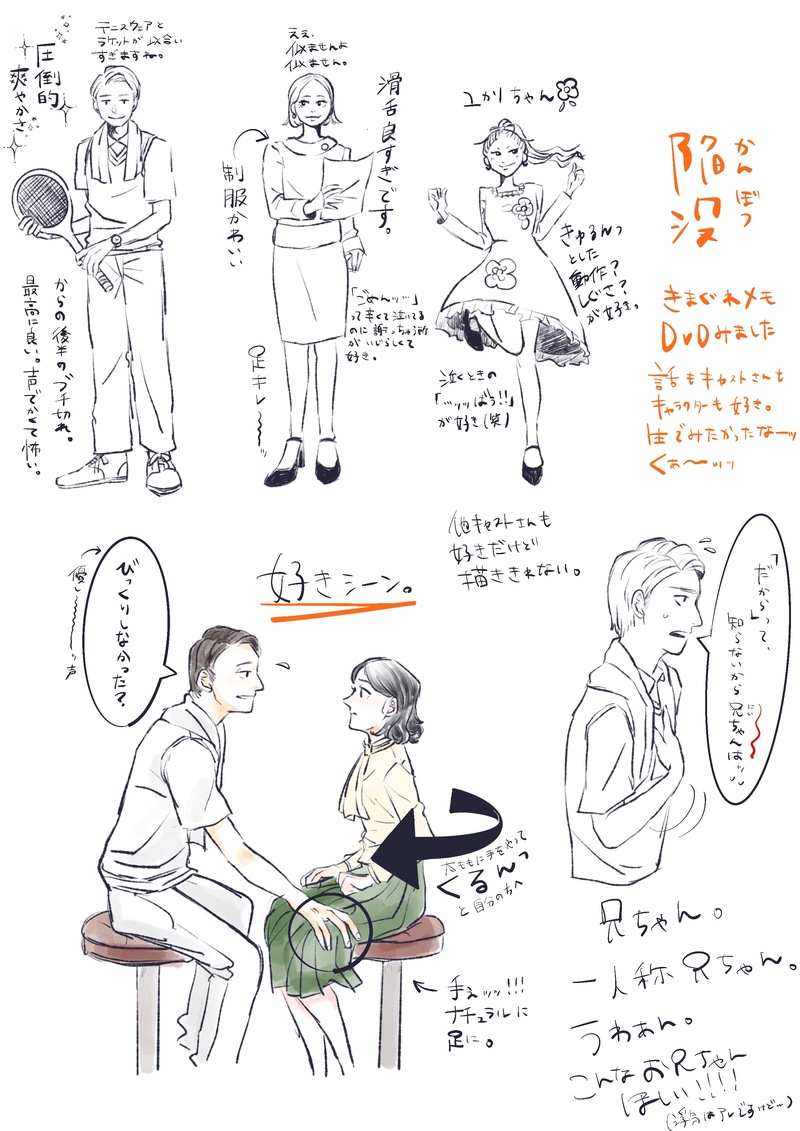 圧倒的
爽やかさ
テニスウェアと
ラケットが似合い
すぎますね。
からの後半のブチ切れ。
最高に良い。声でかくて怖い。
ええ、
似ませんよ
似ません。
滑舌良すぎです。
制服かわいい
「ごめんッッ…」
って辛くて泣いてる
のに謝っちゃう所
がいじらしくて
好き。
足キレ〜〜ッ
ユカリちゃん
きゅるんっ
とした
動作?
しぐさ?
が好き。
泣くときの
「ッッッばう!!」
が好き(笑)
かんぼつ
陥没
きまぐれメモ
DVDみました
話もキャストさんも
キャラクターも好き。
生でみたかったなーッ
くぁ〜ッッ
他キャストさんも
好きだけど
描ききれない。
好きシーン。
びっくりしなかった?
優し〜〜ッ声
太ももに手をやって
くるんっ
と自分の方へ
手ぇッッ!!!
ナチュラルに
足に。
「だから」って、
知らないから兄ちゃんはッ
にい
兄ちゃん。
一人称兄ちゃん。
うわぁん。
こんなお兄ちゃん
ほしい!!!!
(浮気はアレですけど…)